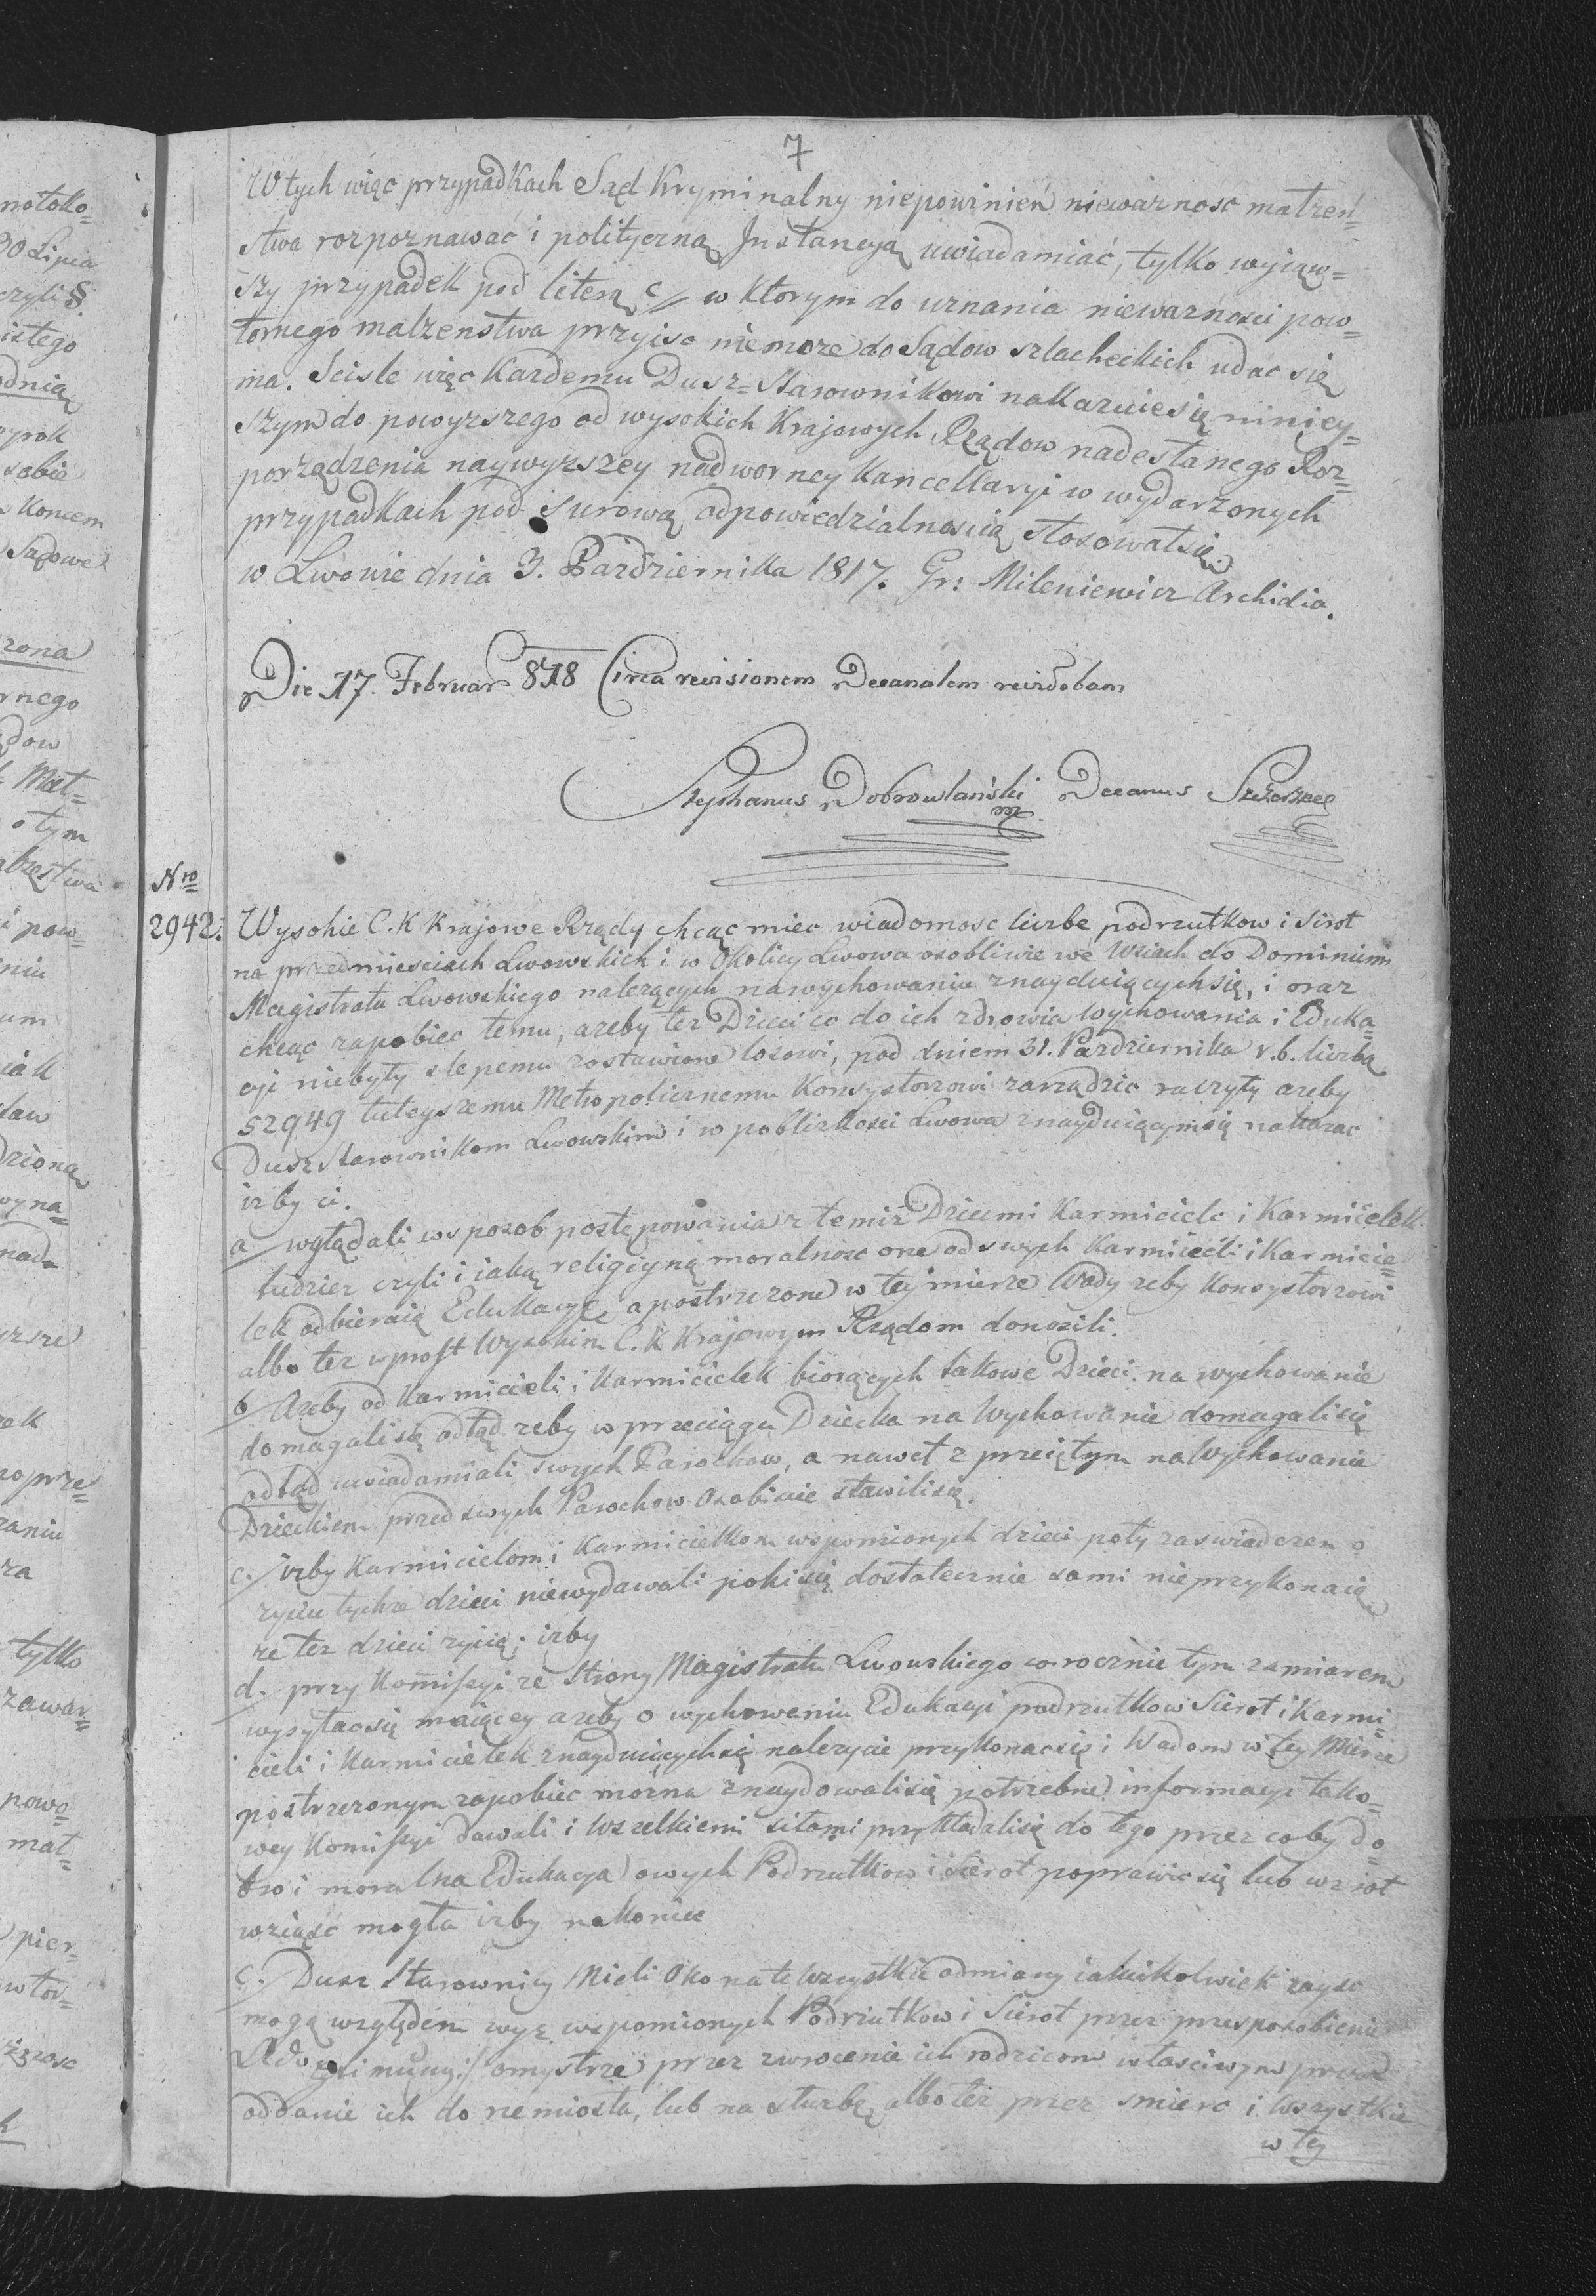 7
W tych więc przypadkach Sąd Kryminalny niepowinień niewaznosc małzeń=
stwa rozpoznawać i polityczną Jnstancyą uwiadamiać, tylko wyiąw=
szy przypadek pod literą c/ w ktorym do uznania niewaznosci pow=
tornego malzenstwa przyisc niemoze do Sądow szlacheckich udac się
ma. Scisle więc Kazdemu Dusz=Starownikowi nakazuie się niniey=
szym do powyzszego od wysokich Krajowych Rządow nadesłanego Roz=
porządzenia naywyzszey nadworney Kancellaryi w wydarzonych
przypadkach pod surową odpowiedzialnoscią stosowałsię.
w Lwowie dnia 3. Pazdziernika 1817. Gr: Mileniewicz Archidia.
Die 17. Februar 818 Circa revisionem Decanalem
Stephanus Dobrowlański Decanus Szczerzec
Nro
2942.
Wysokie C. K Krajowe Rządy chcąc miec wiadomosc liczbe podrzutkow i Sirot
na przedmiesciach Lwowskich i w Okolicy Lwowa osobliwie we Wsiach do Dominium
Magistratu Lwowskiego nalezących nawychowaniu znayduiącychsię, i oraz
chcąc zapobiec temu, azeby tez Dzieci co do ich zdrowia Wychowania i Eduka=
cyi niebyły slepemu zostawione losowi, pod dniem 31. Pazdziernika r. b. liczbą
52949 tuteyszemu Metropolicznemu Konsystorzowi zarządzic raczyły azeby
Dusz Starownikom Lwowskim i w poblizkosci Lwowa znayduiącymsię nakazac
izby ci.
a/ wglądali wsposob postępowania z temiz Dziecmi Karmiciele i Karmicielek
tudziez czyli i iaką religiyną moralnosc one od swych Karmicieli i Karmicie=
lek odbieraią Edukacyę, a postrzezone w tey mierze Wady zeby Konsystorzowi
albo tez wprost Wysokim C. K Krajowym Rządom donosili.
b/ Azeby od Karmicieli i Karmicielek biorących takowe Dzieci na wychowanie
domagalisię odtąd zeby w przeciągu Dziecka na Wychowanie domagalisię
odtąd uwiadamiali swych Parochow, a nawet z przeiętym na Wychowanie
Dzieckiem przed swych Parochow Osobiscie stawilisię.
c./ izby Karmicielom i Karmicielkom wspomionych dzieci poty zaswiadczen o
zyciu tychze dzieci niewydawali pokisię dostatecznie sami nieprzykonaią
ze tez dzieci zyią; izby
d. przy Komissyi ze Strony Magistratu Lwowskiego corocznie tym zamiarem
wysyłacsię maiącey azeby o wychowaniu Edukacyi podrzutkow Sierot i Karmi=
cieli i Karmicielek znayduiącychsię nalezycie przykonacsię i Wadom w tey Mierze
postrzezonym zapobiec mozna znaydowalisię potrzebne informacye tako=
wey Komissyi dawali i Wszelkiemi siłami przykładalisię do tego przez coby do=
bro i moralna Edukacya owych Podrzutkow i Sierot poprawic się lub wzrost
wziąść mogła izby nakoniec
e./ Dusz Starownicy Mieli Oko na te Wszystkie odmiany iakiekolwiek zaysc
mogą względem wyz wspomionych Podrzutkow i Sierot przez przysposobienie
przez zwrocenie ich rodzicom własciwym przez
oddanie ich do rzemiosła, lub na słuzbę albo tez przez smierc i Wszystkie
w tey